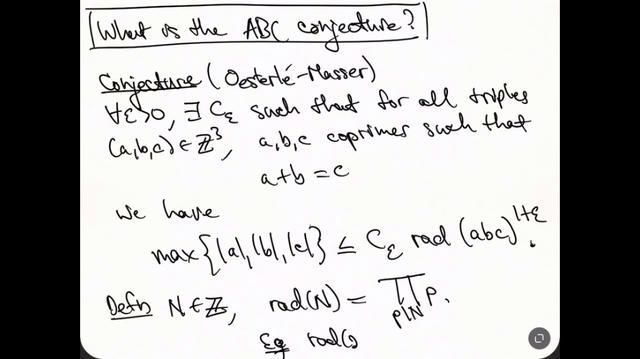 What is the ABC conjecture?
Conjecture (Oesterlé-Masser)
∀ε>0, ∃ C_ε such that for all triples
(a,b,c) ∈ ℤ³, a,b,c coprimes such that
a+b=c
we have
max{|a|,|b|,|c|} ≤ C_ε rad(abc)^{1+ε}.
Defn N∈ℤ, rad(N) = ∏_{p|N} p.
Eg rad(